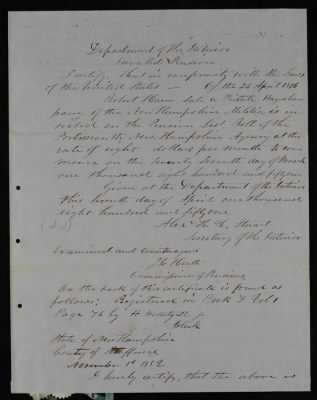 Department of the Interior
Invalid Pension
I certify that in conformity with the Laws
of the United States — Of the 24 April 1816
Robert late a Private
of the New Hampshire Militia is in
scribed on the Pension List Roll of the
Portsmouth, New Hampshire Agency at the
rate of eight dollars per month to com
mence on the twenty seventh day of March
one thousand eight hundred and fifty one
Given at the Department of the Interior
this seventh day of April one thousand
eight hundred and fifty one
Alex. H. H. Stuart
Secretary of the Interior
Examined and countersigned
J. E. Heath
Commissioner of Pensions,
On the back of this certificate is found as
follows; Registered in Book Vol
Page 76 by H
Clerk
State of New Hampshire
County of
November 1st 1852
I hereby certify, that the above is